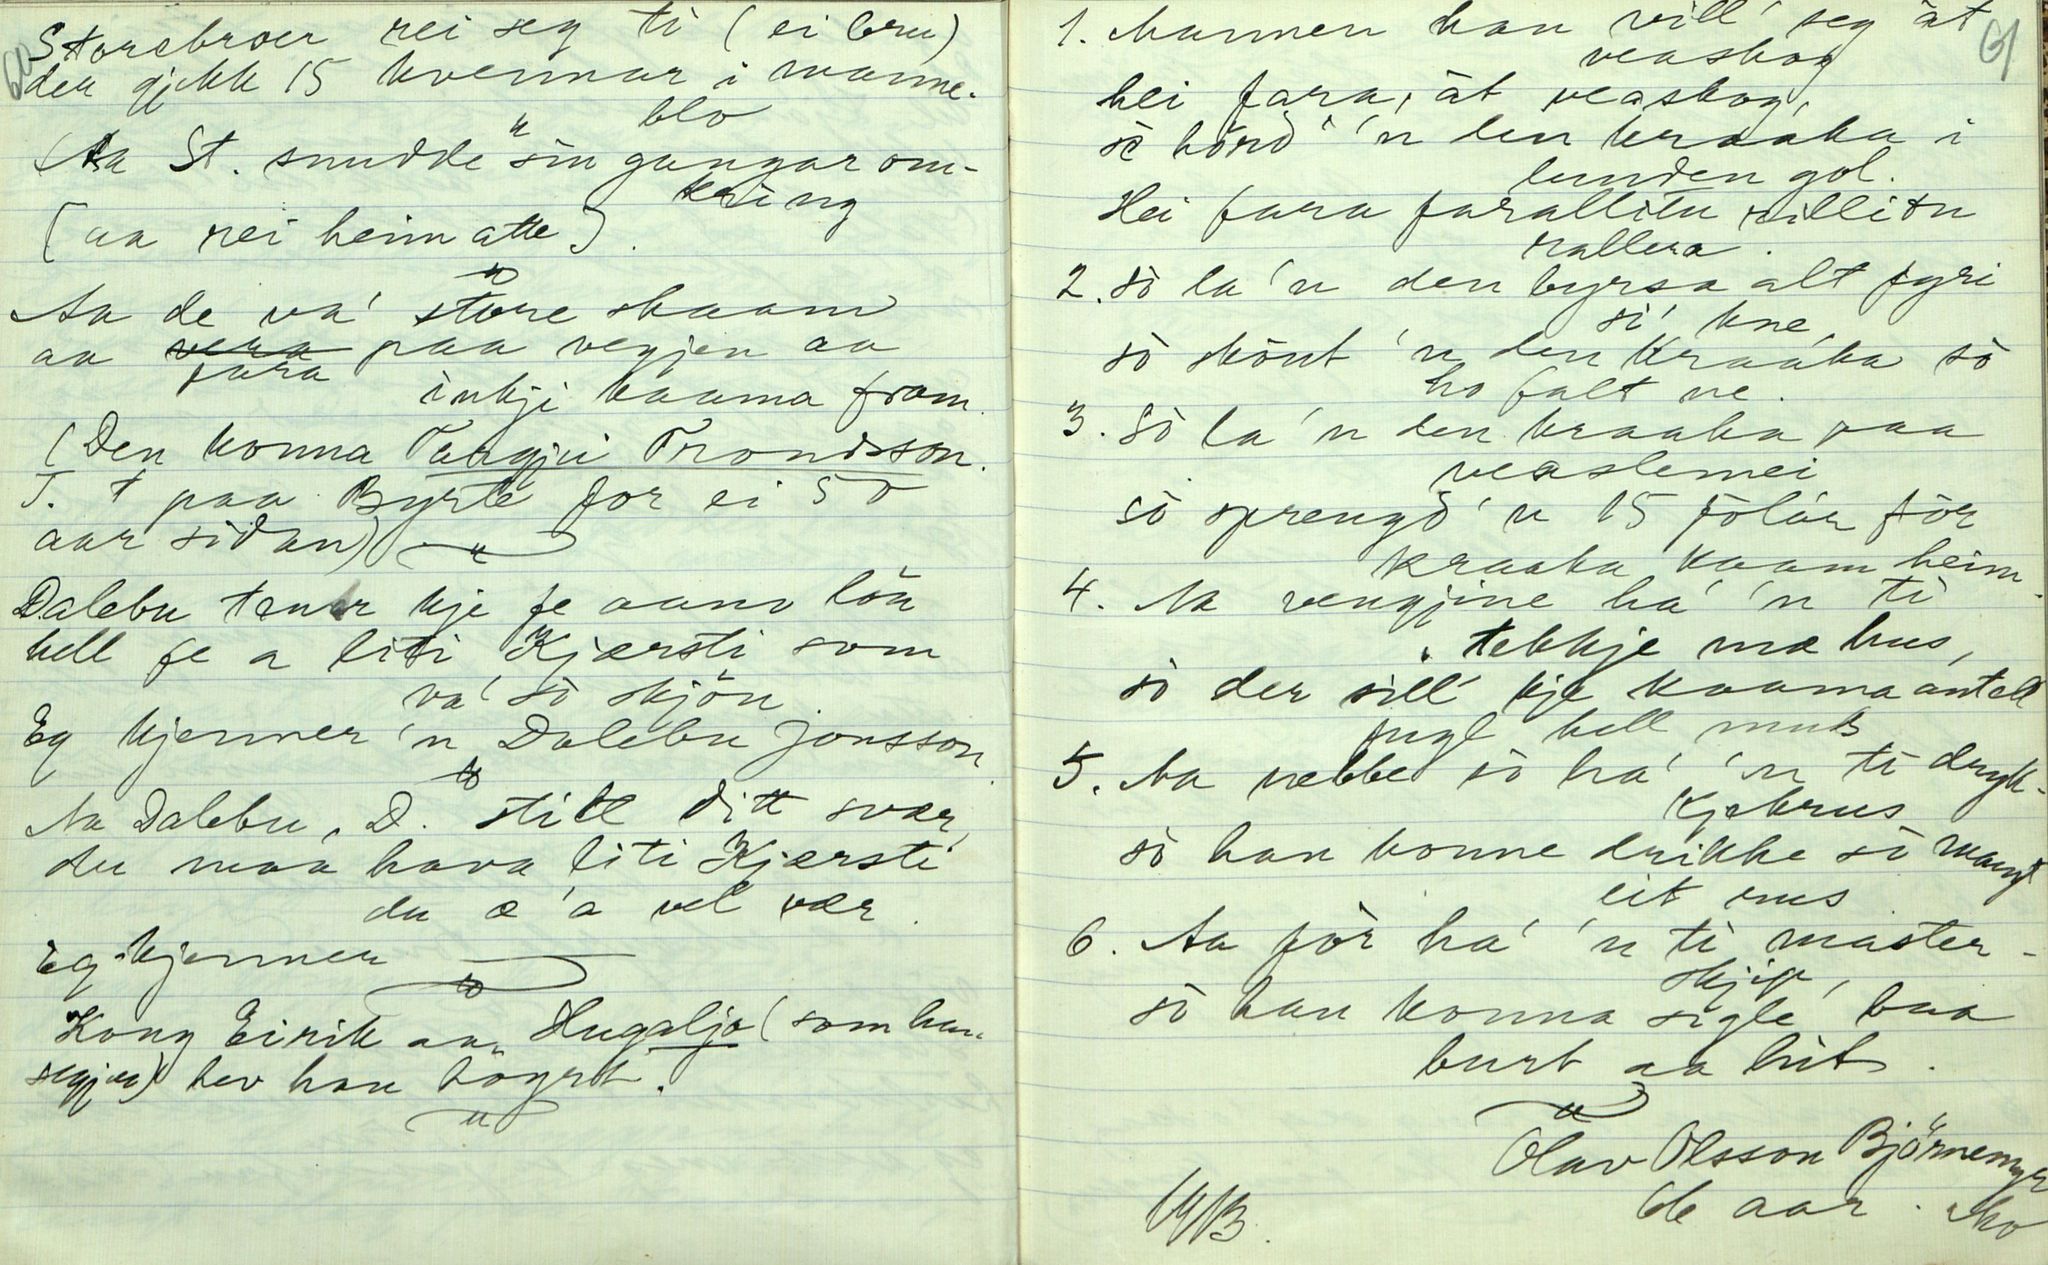 60
Storebroer rei seg ti (ei bru)
der gjekk 15 kvennar i manne-
blo
(Aa St. snudde sin gangar om-
kring
(aa rei heimatte).
Aa de va' store skaam
aa vera paa vegjen aa
fara
inkji kaama fram.
(Den konna Taagjei Trondsson.
T. † paa Byrte for ei 50
aar sidan)
Dalebu tener kje fe aann lön
hell fe a liti Kjærsti som
va' sò skjön.
Eg kjenner 'n Dalebu Jonsson.
Aa Dalebu, D. still ditt svær,
du maa hava liti Kjærsti
du æ 'a vel vær.
Eg kjenner
Kong Eirik aa Hugaljo (som han
segjer) hev han höyrt.
61
1. Mannen han vill' seg åt
veaskog
hei fara, åt veaskog,
sè hörd' 'n den kraaka i
lunden gol.
Hei fara farallitu rillion
rallera.
2. Sò la 'n den byrsa alt fyri
si' kne,
sò skönt 'n den kraaka sò
ho falt ne.
3. Sò la 'n den kraaka paa
veaslemei
sò sprengd' 'n 15 fölár för
kraaka kaam heim.
4. Aa vengjine ha' 'n ti
tekkje mæ hus,
sò der sill' kje kaama antell
fugl hell mus
5. Aa nebbe sò ha' 'n ti drykk-
kjebrus
sò han konne drikke sò mangt
eit rus
6. Aaför ha' 'n ti master-
skjip,
sò han konna sigle baa
burt aa hit.
Olav Olsson Björnemyr
66 aar. Mo
1913.